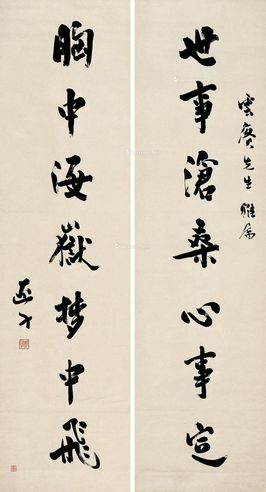 世事滄桑心事定
雲賡先生雅屬
胸中海嶽夢中飛